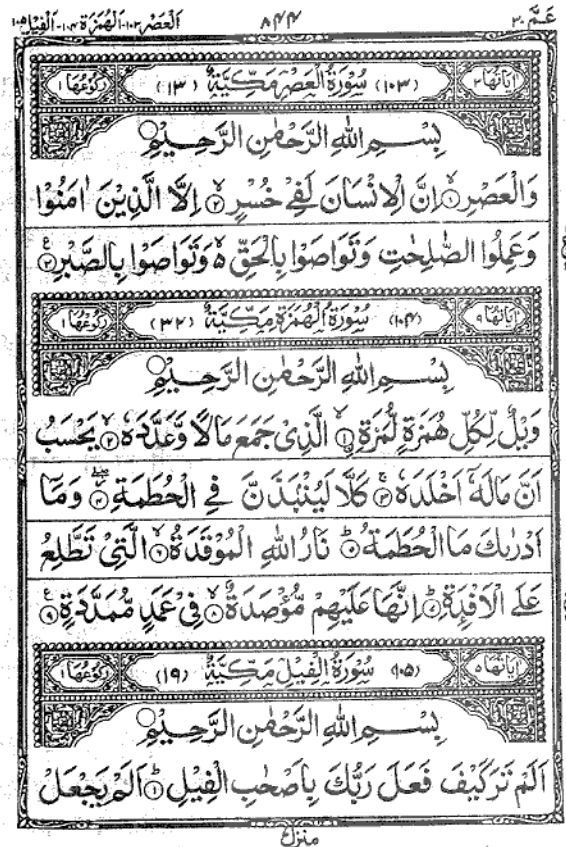 عَمَّ ٣٠ ٨٤٤ اَلْعَصْر ١٠٣-اَلْهُمَزَة ١٠٤-اَلْفِيْل ١٠٥
اٰيَاتُهَا ٣ (١٠٣) سُوْرَةُ الْعَصْرِ مَكِّيَّةٌ (١٣) رُكُوْعُهَا ١
بِسْمِ اللهِ الرَّحْمٰنِ الرَّحِيْمِ
وَالْعَصْرِ ۙ﴿١﴾ اِنَّ الْاِنْسَانَ لَفِيْ خُسْرٍ ۙ﴿٢﴾ اِلَّا الَّذِيْنَ اٰمَنُوْا
وَعَمِلُوا الصّٰلِحٰتِ وَتَوَاصَوْا بِالْحَقِّ ۙ۬ وَتَوَاصَوْا بِالصَّبْرِ ﴿٣﴾
اٰيَاتُهَا ٩ (١٠٤) سُوْرَةُ الْهُمَزَةِ مَكِّيَّةٌ (٣٢) رُكُوْعُهَا ١
بِسْمِ اللهِ الرَّحْمٰنِ الرَّحِيْمِ
وَيْلٌ لِّكُلِّ هُمَزَةٍ لُّمَزَةٍ ۙ﴿١﴾ الَّذِيْ جَمَعَ مَالًا وَّعَدَّدَهٗ ۙ﴿٢﴾ يَحْسَبُ
اَنَّ مَالَهٗٓ اَخْلَدَهٗ ۚ﴿٣﴾ كَلَّا لَيُنْۢبَذَنَّ فِي الْحُطَمَةِ ۖ﴿٤﴾ وَمَآ
اَدْرٰىكَ مَا الْحُطَمَةُ ؕ﴿٥﴾ نَارُ اللهِ الْمُوْقَدَةُ ۙ﴿٦﴾ الَّتِيْ تَطَّلِعُ
عَلَى الْاَفْـِٕدَةِ ؕ﴿٧﴾ اِنَّهَا عَلَيْهِمْ مُّؤْصَدَةٌ ۙ﴿٨﴾ فِيْ عَمَدٍ مُّمَدَّدَةٍ ﴿٩﴾
اٰيَاتُهَا ٥ (١٠٥) سُوْرَةُ الْفِيْلِ مَكِّيَّةٌ (١٩) رُكُوْعُهَا ١
بِسْمِ اللهِ الرَّحْمٰنِ الرَّحِيْمِ
اَلَمْ تَرَ كَيْفَ فَعَلَ رَبُّكَ بِاَصْحٰبِ الْفِيْلِ ؕ﴿١﴾ اَلَمْ يَجْعَلْ
منزل